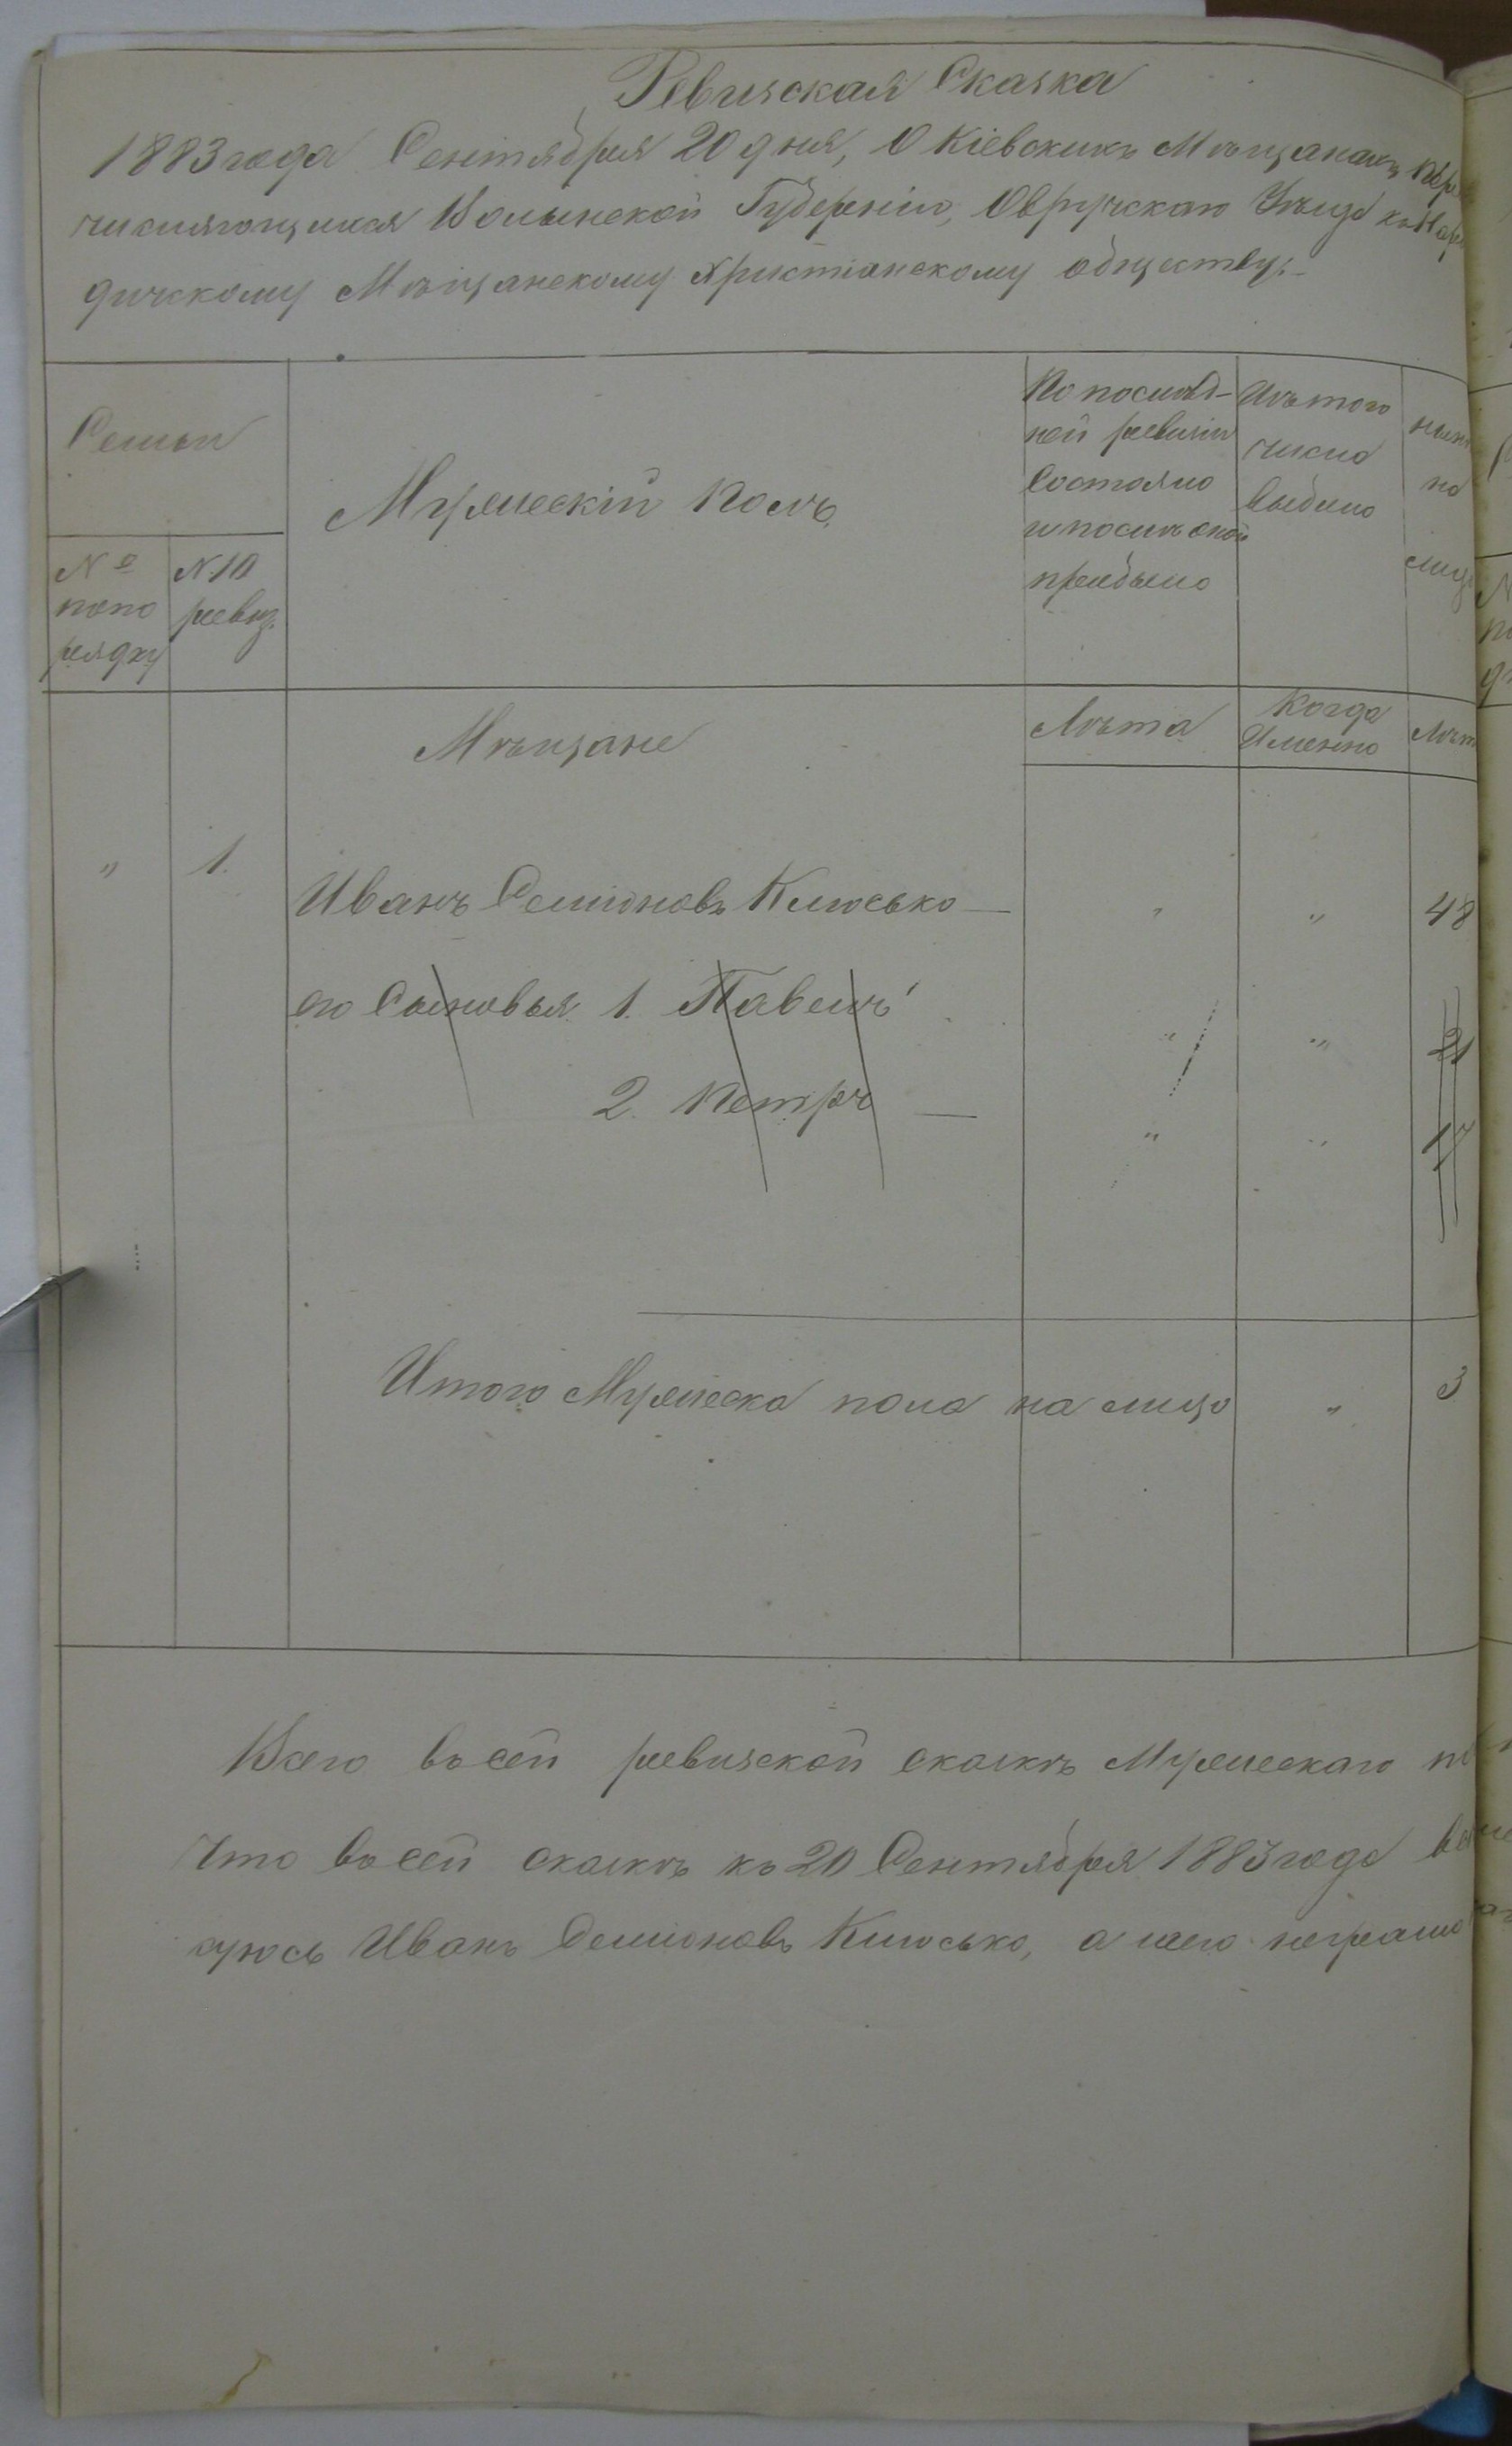 Ревизская Сказка
1883 года Сентября 20 дня, О Кіевскихъ Мѣщанахъ пере
числяющихся Волынской Губерніи, Овручскаго Уѣзда къ Наро
дичскому Мѣщанскому Христіанскому обществу.
Семьи
№ попо рядку
№ 10 ревиз.
Мужескій полъ
По послѣд-
ней ревизіи
состояло
и послѣ оной
прибыло
Изъ того
числа
выбыло
нынѣ
на
лицо
Мѣщане
Лѣта
Когда Именно
Лѣт
" 1. Иванъ Семіоновъ Клюсько — " " 48
его Сыновья 1. Павелъ " " 21
2. Петръ — " " 17
Итого Мужеска пола на лицо " 3
Всего въ сей ревизской сказкѣ Мужескаго по
Что въ сей сказкѣ къ 20 Сентября 1883 года
суюсь Иванъ Семіоновъ Клюсько, а неграмо